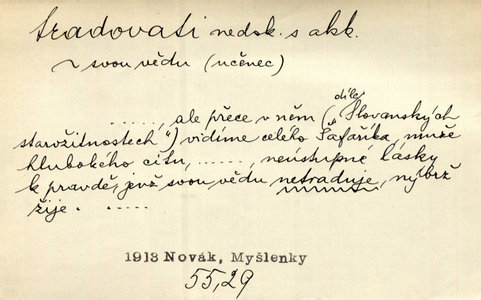 tradovati nedok. s akk.
~ svou vědu (učenec)
......, ale přece v něm („ díle Slovanských
starožitnostech“) vidíme celého Šafaříka, muže
hlubokého citu, ......, neústupné lásky
k pravdě, jenž svou vědu netraduje, nýbrž
žije. .....
1913 Novák, Myšlenky
55,29